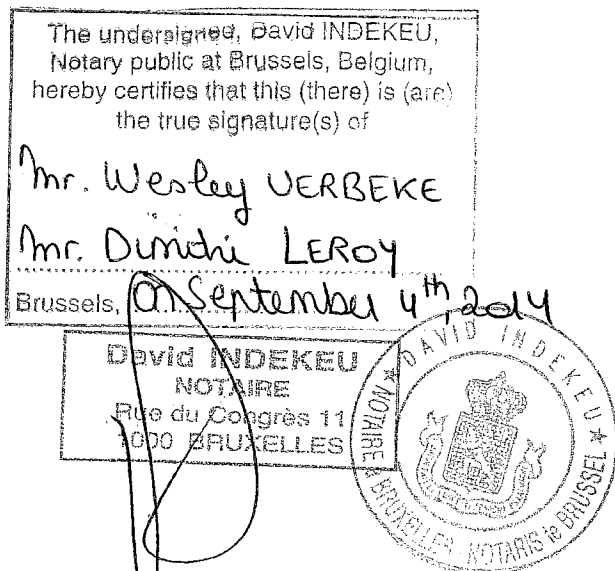 The undersigned, David INDEKEU,
Notary public at Brussels, Belgium,
hereby certifies that this (there) is (are)
the true signature(s) of
Mr. Wesley VERBEKE
Mr. Dimitri LEROY
Brussels, On September 4th, 2014
David INDEKEU
NOTAIRE
Rue du Congrès 11
1000 BRUXELLES
DAVID INDEKEU ★ NOTAIRE à BRUXELLES - NOTARIS te BRUSSEL ★